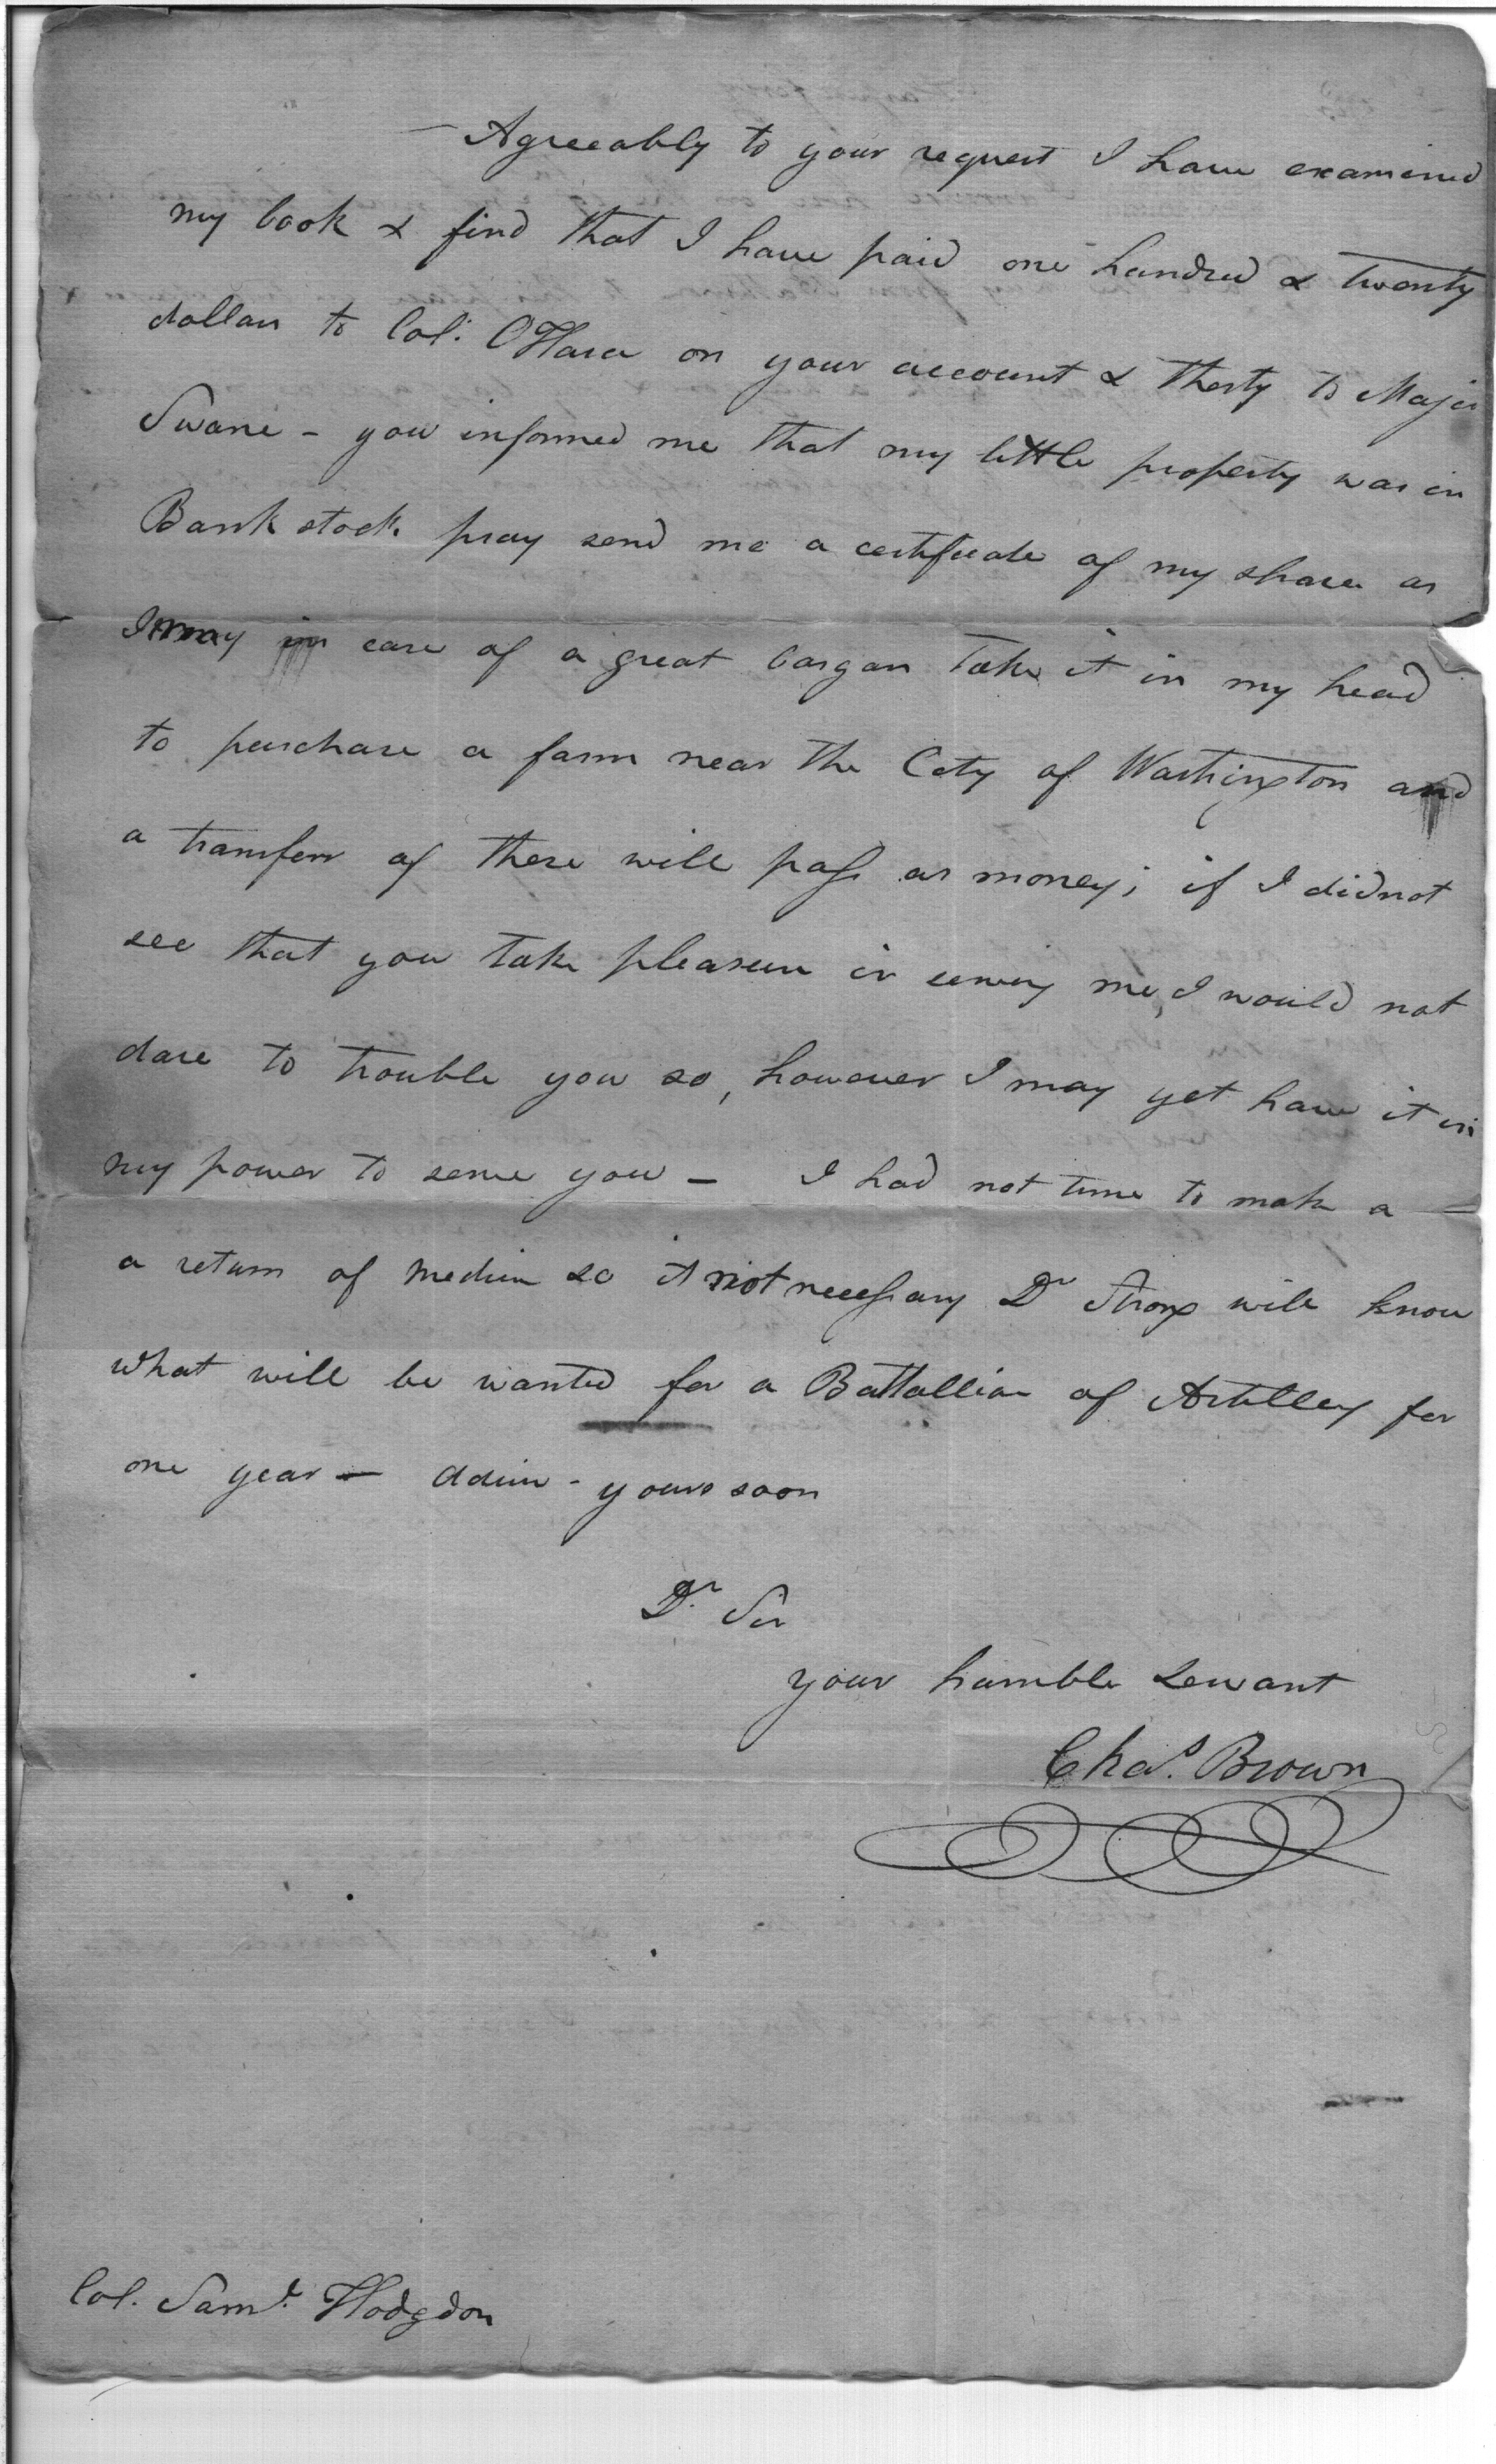 Agreeably to your request I have examined
my book & find that I have paid one hundred & twenty
dollars to Col. OHara on your account & therty to Major
Swane - you informed me that my little property was in
Bank stock pray send me a certificate of my shares as
I may in case of a great bargan take it in my head
to purchase a farm near the City of Washington and
a transferr of these will pass as money; if I did not
see that you take pleasure in serving me, I would not
dare to trouble you so, however I may yet have it in
my power to serve you — I had not time to make a —
a return of Medicin so it not necessary Dr Strong will know
what will be wanted for a Battallion of Artillery for
one year — Adieu - yours soon
Dr. Sir
your humble Servant
Chas. Brown
Col. Saml. Hodgdon